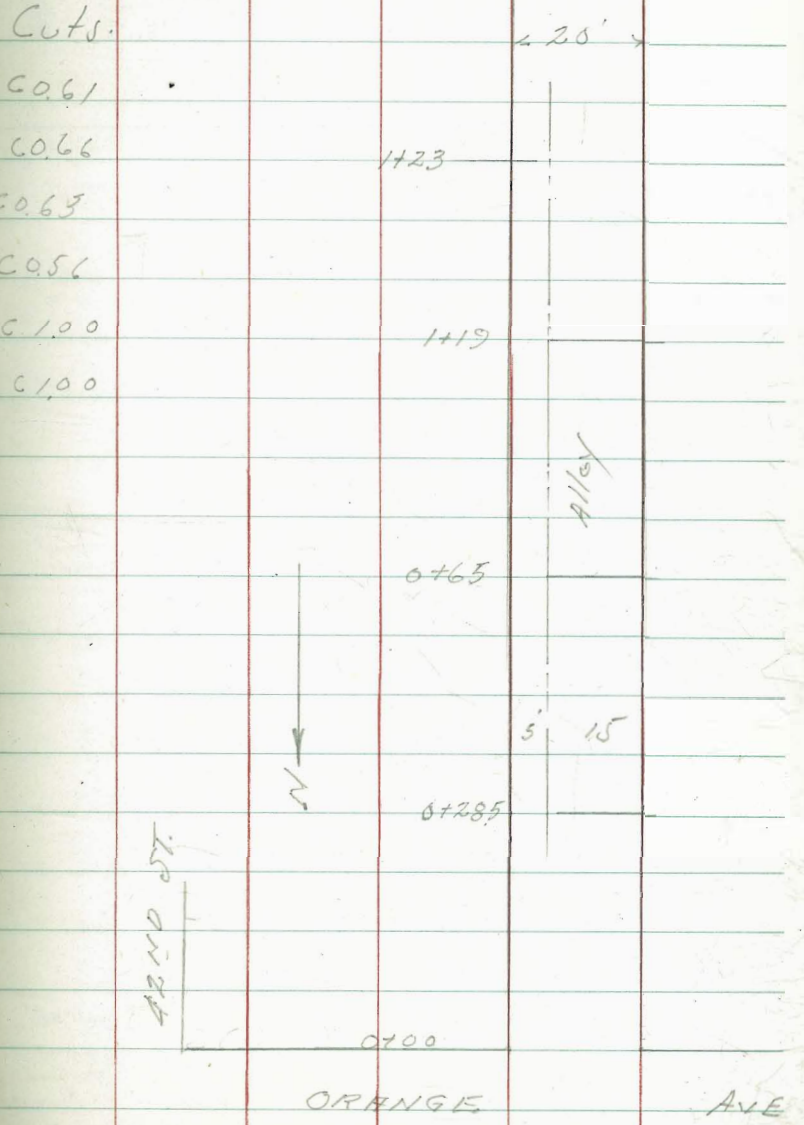 Cuts.
20'
C0.61
C0.66
1+23
C0.63
C0.56
C1.00
1+19
C1.00
Alley
0+65
5' 15
N
0+285
42ND ST.
0+00
ORANGE AVE